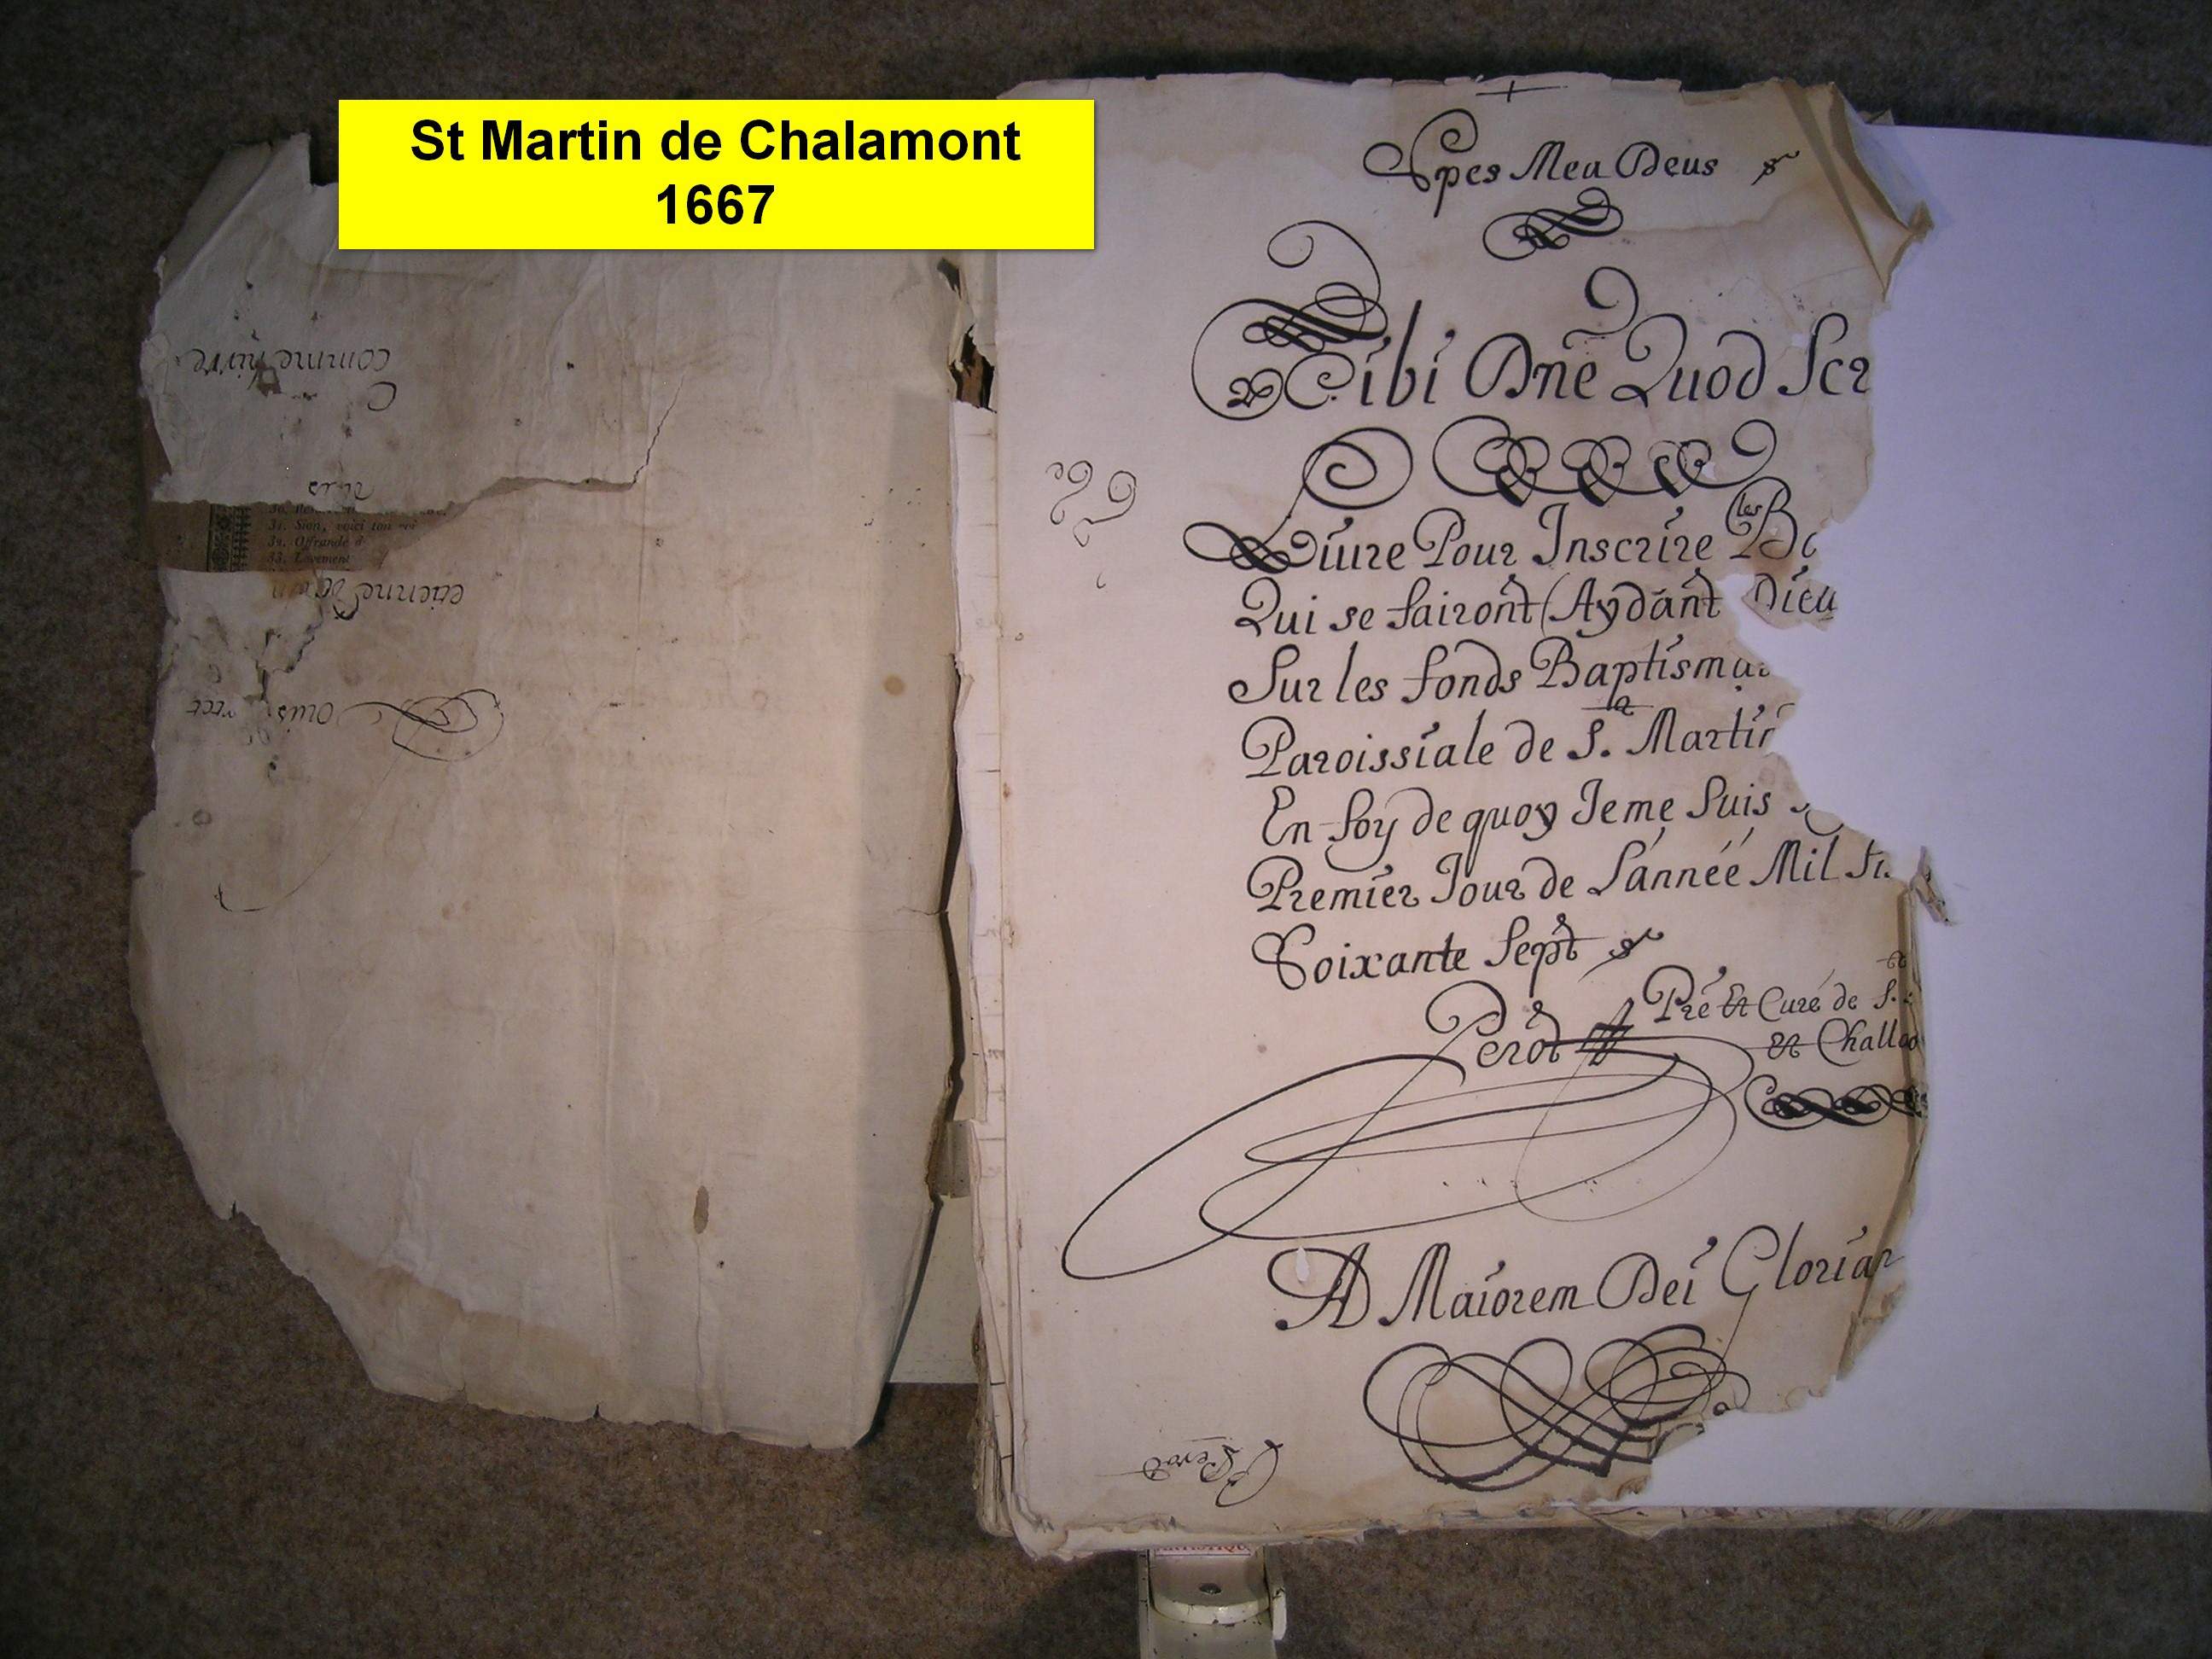 St Martin de Chalamont
1667
comme
31. Sion, voici ton roi
32. Offrande d
33. Lavement
etienne
Spes Mea Deus
Tibi Dne Quod Scr
Liure Pour Inscrire les B
Qui se fairont (Aydant Dieu
Sur les fonds Baptisma
Paroissiale de S. Martin
En foy de quoy Je me Suis
Premier Jour de L'année Mil Si
Soixante Sept
Perot Pre Et Curé de S.
Et Challa
AD Maiorem Dei Gloriam
Perot